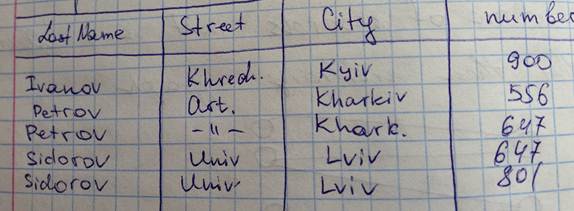 Last Name Street City number
Ivanov Khrech. Kyiv 900
Petrov Art. Kharkiv 556
Petrov -"- Khark. 647
Sidorov Univ Lviv 647
Sidorov Univ Lviv 801